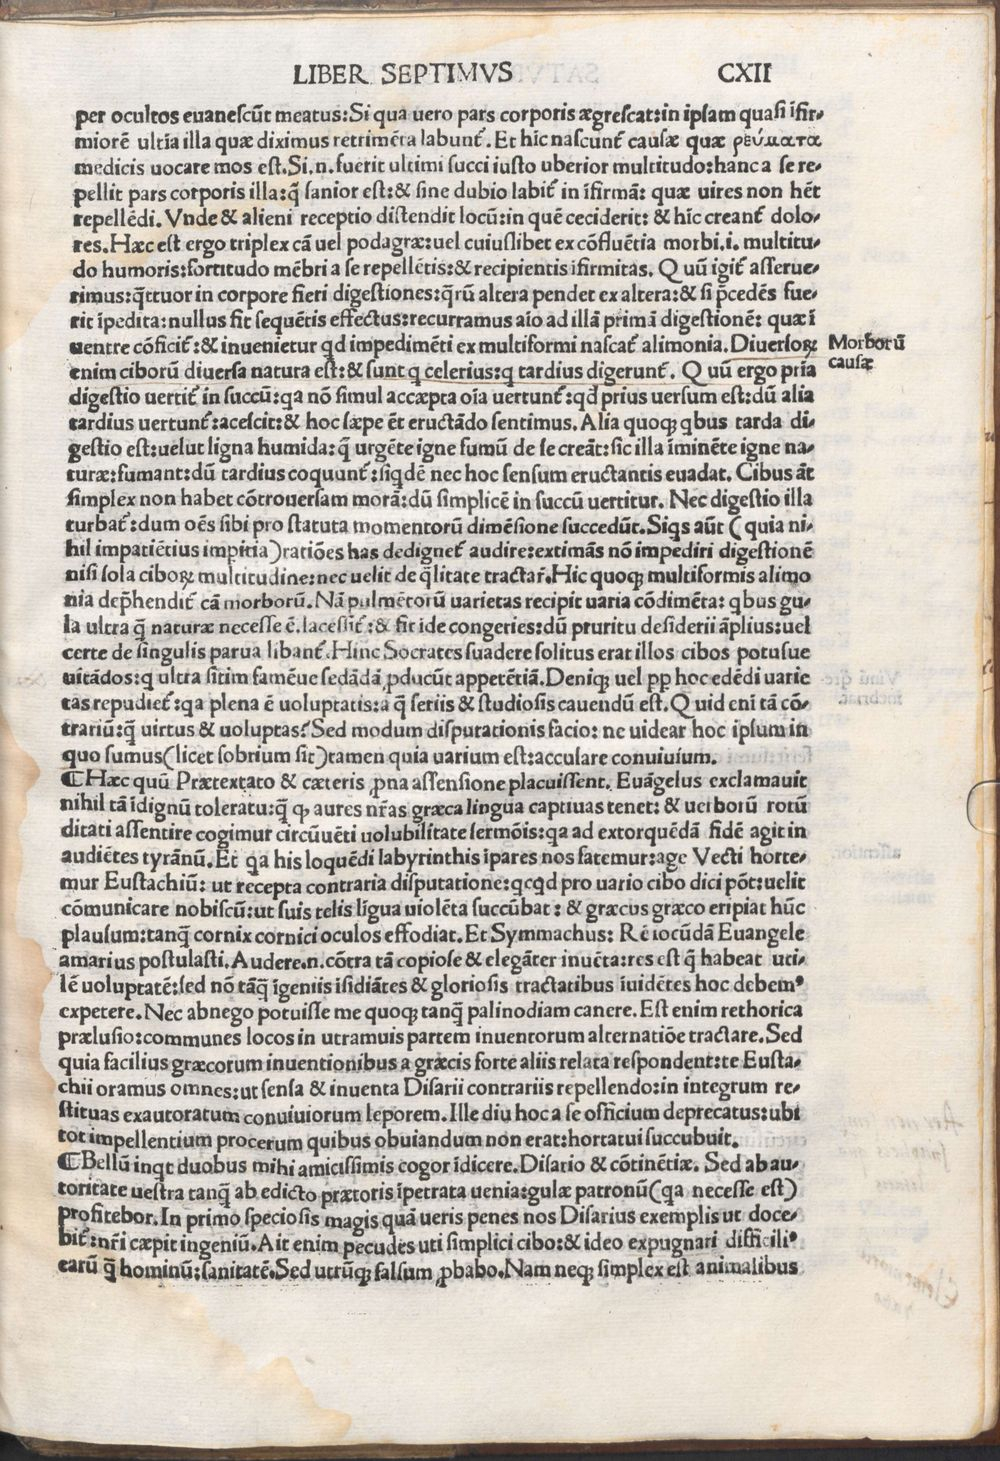 LIBER SEPTIMVS CXII
per ocultos euaneſcūt meatus:Si qua uero pars corporis ægreſcat:in ipſam quaſi īfir-
miorē ultīa illa quæ diximus retrimēta labunt᷑. Et hīc naſcunt᷑ cauſæ quæ ῥεύματα
medicis uocare mos eſt.Si.n.fuerit ultimi ſucci iuſto uberior multitudo:hanc a ſe re-
pellit pars corporis illa:q̄ ſanior eſt:& ſine dubio labit᷑ in īfirmā: quæ uires non hēt
repellēdi. Vnde & alieni receptio diſtendit locū:in quē ceciderit: & hīc creant᷑ dolo-
res.Hæc eſt ergo triplex cā uel podagræ:uel cuiuſlibet ex cōfluētia morbi.i. multitu-
do humoris:fortitudo mēbri a ſe repellētis:& recipientis ifirmitas. Q uū igit᷑ aſſerue-
rimus:q̄ttuor in corpore fieri digeſtiones:q̄rū altera pendet ex altera:& ſi p̄cedēs fue-
rit īpedita:nullus fit ſequētis effectus:recurramus aīo ad illā primā digeſtionē: quæ ī
uentre cōficit᷑:& inuenietur qd impedimēti ex multiformi naſcat᷑ alimonia. Diuerſoꝝ
enim ciborū diuerſa natura eſt:& ſunt q celerius:q tardius digerunt᷑. Q uū ergo pria
digeſtio uertit᷑ in ſuccū:qa nō ſimul accæpta oīa uertunt᷑:qd prius uerſum eſt:dū alia
tardius uertunt᷑:aceſcit:& hoc ſæpe ēt eructādo ſentimus. Alia quoqꝫ qbus tarda di-
geſtio eſt:uelut ligna humida:q̄ urgēte igne fumū de ſe creāt:ſic illa īminēte igne na-
turæ:fumant:dū tardius coquunt᷑:ſiqdē nec hoc ſenſum eructantis euadat. Cibus āt
ſimplex non habet cōtrouerſam morā:dū ſimplicē in ſuccū uertitur. Nec digeſtio illa
turbat᷑:dum oēs ſibi pro ſtatuta momentorū dimēſione ſuccedūt.Siqs aūt (quia ni-
hil impatiētius imperitia)ratiōes has dedignet᷑ audire:extimās nō impediri digeſtionē
niſi ſola ciboꝝ multitudine:nec uelit de q̄litate tractar̄.Hic quoqꝫ multiformis alimo
nia dep̄hendit᷑ cā morborū.Nā pulmētorū uarietas recipit uaria cōdimēta: qbus gu-
la ultra q̄ naturæ neceſſe ē.laceſſit᷑:& fit īde congeries:dū pruritu deſiderii āplius:uel
certe de ſingulis parua libant᷑. Hinc Socrates ſuadere ſolitus erat illos cibos potuſue
uitādos:q ultra ſitim famēue ſedādā ꝓducūt appetētiā.Deniqꝫ uel ꝓpꝑ hoc edēdi uarie
tas repudiet᷑:qa plena ē uoluptatis:a q̄ ſeriis & ſtudioſis cauendū eſt. Q uid eni tā cō-
trariū:q̄ uirtus & uoluptas? Sed modum diſputationis facio: ne uidear hoc ipſum in
quo ſumus(licet ſobrium ſit)tamen quia uarium eſt:acculare conuiuium.
¶Hæc quū Prætextato & cæteris ꝓna aſſenſione placuiſſent. Euāgelus exclamauit
nihil tā īdignū toleratu:q̄ qꝫ aures nr̄as græca lingua captiuas tenet: & uerborū rotū
ditati aſſentire cogimur circūuēti uolubilitate ſermōis:qa ad extorquēdā fidē agit in
audiētes tyrānū. Et qa his loquēdi labyrinthis īpares nos fatemur:age Vecti horte-
mur Euſtachiū: ut recepta contraria diſputatione:qcqd pro uario cibo dici pōt:uelit
cōmunicare nobiſcū:ut ſuis telis līgua uiolēta ſuccūbat: & græcus græco eripiat hūc
plauſum:tanq̄ cornix cornici oculos effodiat. Et Symmachus: Rē iocūdā Euangele
amarius poſtulaſti. Audere.n.cōtra tā copioſe & elegāter inuēta:res eſt q̄ habeat uti-
lē uoluptatē:ſed nō tāq̄ īgeniis iſidiātes & glorioſis tractatibus īuidētes hoc debemꝰ
expetere. Nec abnego potuiſſe me quoqꝫ tanq̄ palinodiam canere. Eſt enim rethorica
præluſio:communes locos in utramuis partem inuentorum alternatiōe tractare. Sed
quia facilius græcorum inuentionibus a græcis forte aliis relata reſpondent:te Euſta-
chii oramus omnes:ut ſenſa & inuenta Diſarii contrariis repellendo:in integrum re-
ſtituas exautoratum conuiuiorum leporem. Ille diu hoc a ſe officium deprecatus:ubi
tot impellentium procerum quibus obuiandum non erat:hortatui ſuccubuit.
¶Bellū inqt duobus mihi amiciſſimis cogor īdicere.Diſario & cōtinētiæ. Sed ab au-
toritate ueſtra tanq̄ ab edicto prætoris īpetrata uenia:gulæ patronū(qa neceſſe eſt)
profitebor.In primo ſpecioſis magis quā ueris penes nos Diſarius exemplis ut doce-
bit᷑:nr̄i cæpit ingeniū.Ait enim pecudes uti ſimplici cibo:& ideo expugnari difficiliꝰ
earū q̄ hominū:ſanitatē.Sed utrūqꝫ falſum ꝓbabo.Nam neqꝫ ſimplex eſt animalibus
Morborū
cauſæ